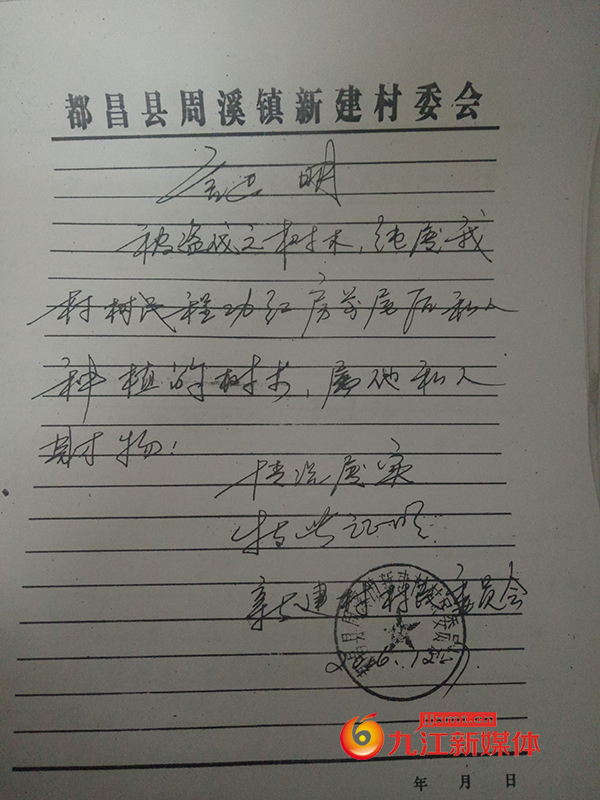 都昌县周溪镇新建村委会
证明
被盗伐之树木，纯属我
村村民程功红房前屋后私人
种植的树木，属他私人
财物！
情况属实
特此证明
新建村村民委员会
2016.12.
jjcmw.cn
九江新媒体
年 月 日